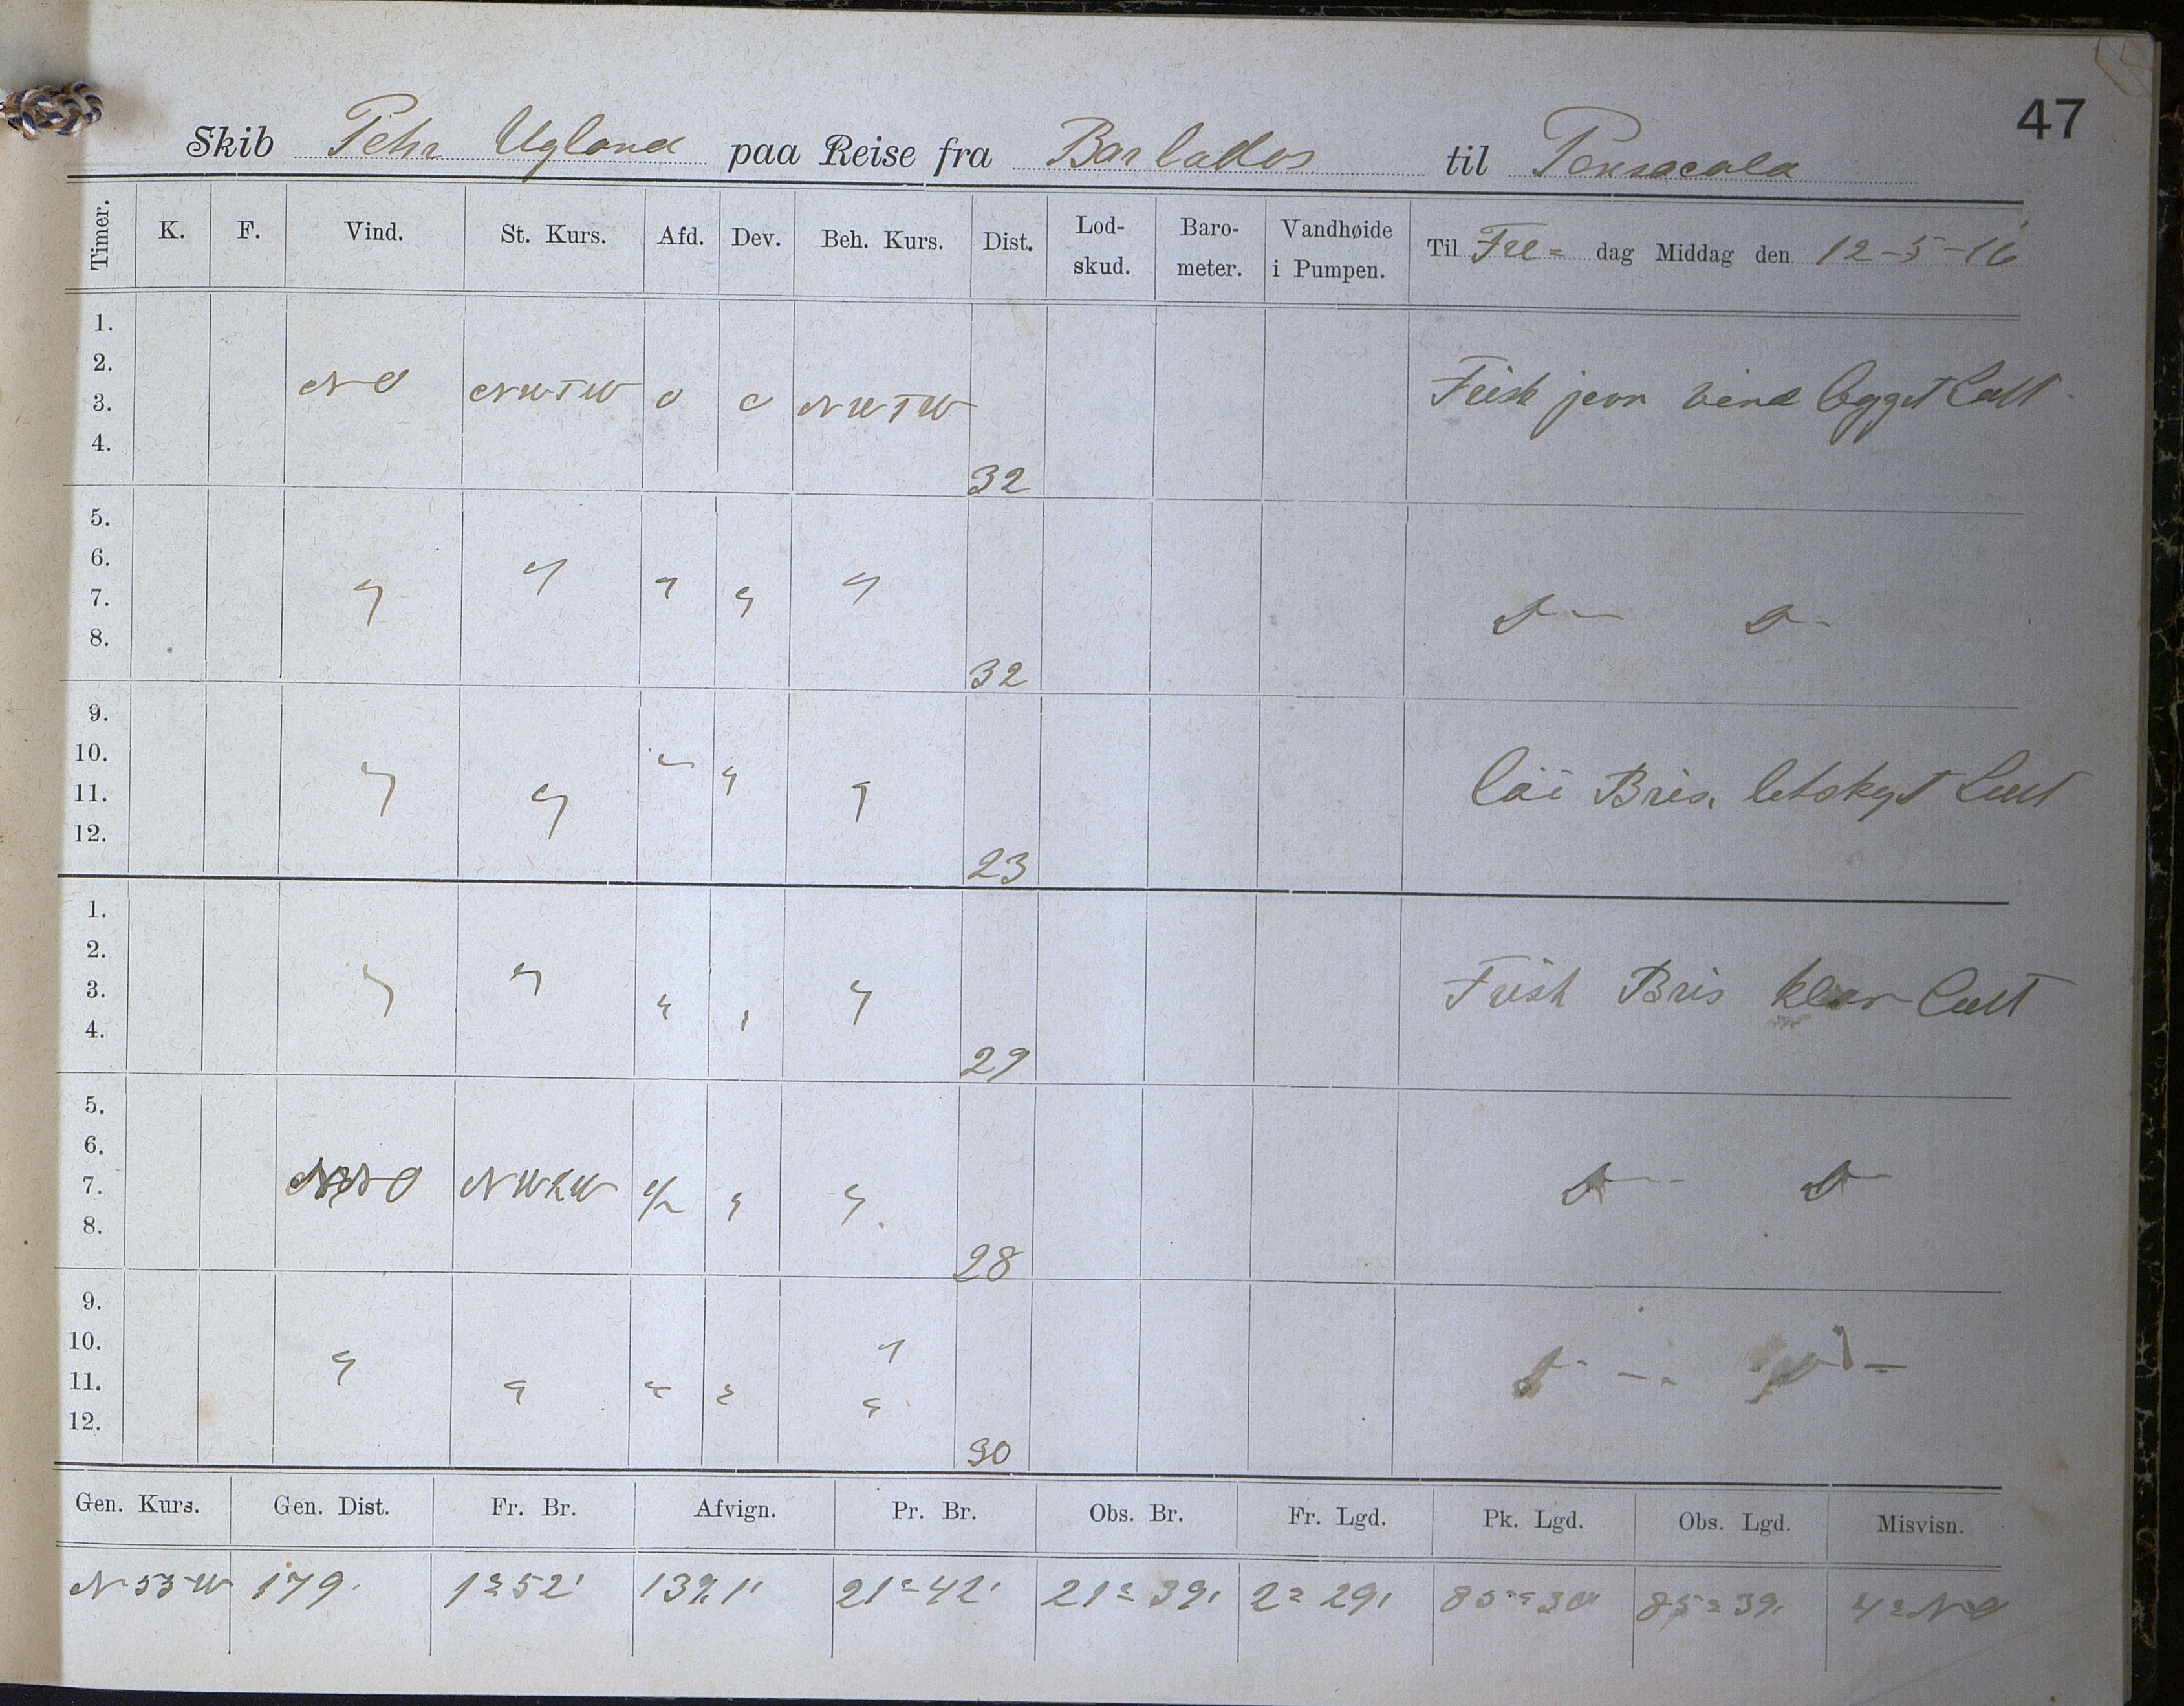 47
Skib Pehr Ugland paa Reise fra Barbados til Pensacola
Timer. K. F. Vind. St. Kurs. Afd. Dev. Beh. Kurs. Dist. Lod-skud. Baro-meter. Vandhøide i Pumpen. Til Fre= dag Middag den 12-5-16
1.
2.
3. NO NWTW 0 0 NWTW Frisk jevn vind bygget Luft
4.
32
5.
6.
7. " " " " "
8.
32
9.
10.
11. " " " " " løi Bris, letskyet Luft
12.
23
1.
2.
3. " " " " " Frisk Bris klar Luft
4.
29
5.
6.
7. NWKW " "
8.
28
9.
10.
11. " " " " "
12.
30
Gen. Kurs. Gen. Dist. Fr. Br. Afvign. Pr. Br. Obs. Br. Fr. Lgd. Pk. Lgd. Obs. Lgd. Misvisn.
N 53 W 179' 1° 52' 139,1' 21° 42' 21° 39' 2° 29' 85° 30' 85° 39' 4° NO